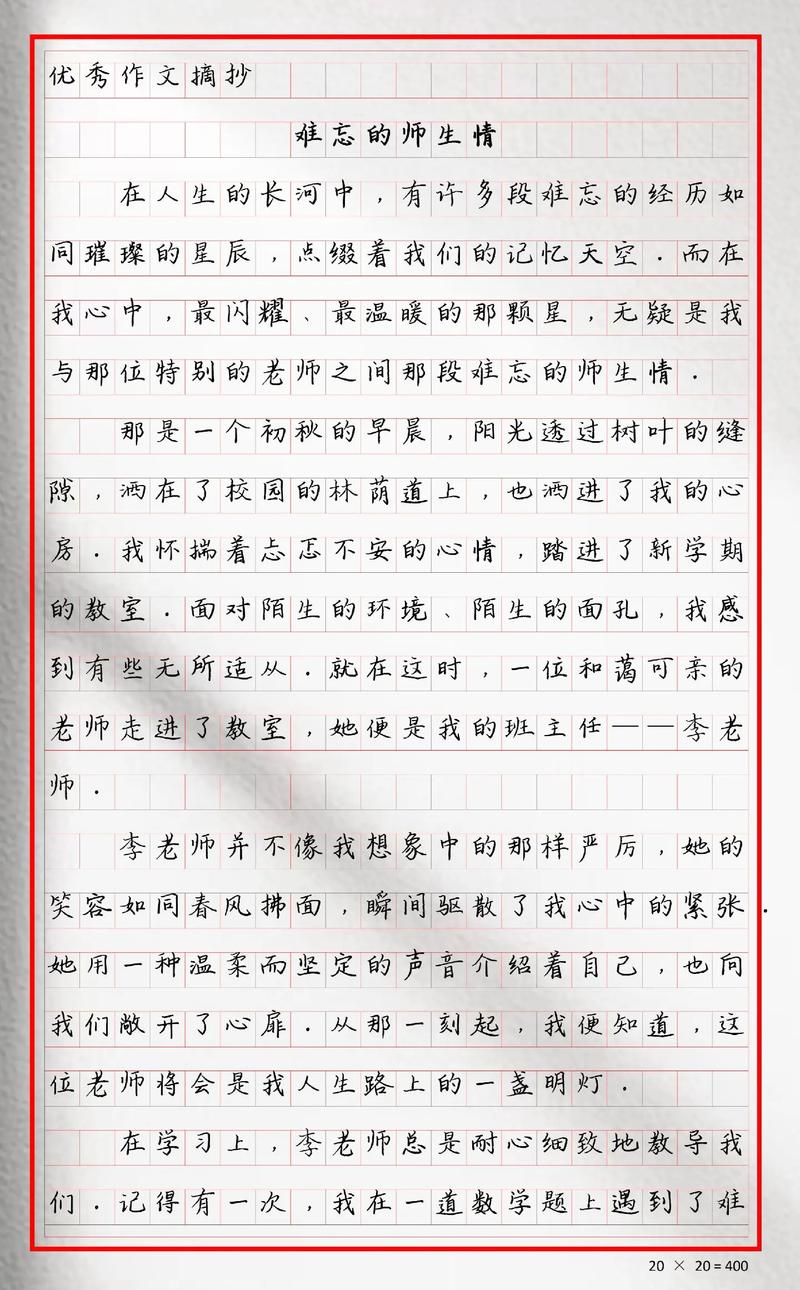 优秀作文摘抄
难忘的师生情
在人生的长河中，有许多段难忘的经历如
同璀璨的星辰，点缀着我们的记忆天空．而在
我心中，最闪耀、最温暖的那颗星，无疑是我
与那位特别的老师之间那段难忘的师生情．
那是一个初秋的早晨，阳光透过树叶的缝
隙，洒在了校园的林荫道上，也洒进了我的心
房．我怀揣着忐忑不安的心情，踏进了新学期
的教室．面对陌生的环境、陌生的面孔，我感
到有些无所适从．就在这时，一位和蔼可亲的
老师走进了教室，她便是我的班主任——李老
师．
李老师并不像我想象中的那样严厉，她的
笑容如同春风拂面，瞬间驱散了我心中的紧张．
她用一种温柔而坚定的声音介绍着自己，也向
我们敞开了心扉．从那一刻起，我便知道，这
位老师将会是我人生路上的一盏明灯．
在学习上，李老师总是耐心细致地教导我
们．记得有一次，我在一道数学题上遇到了难
20 × 20=400